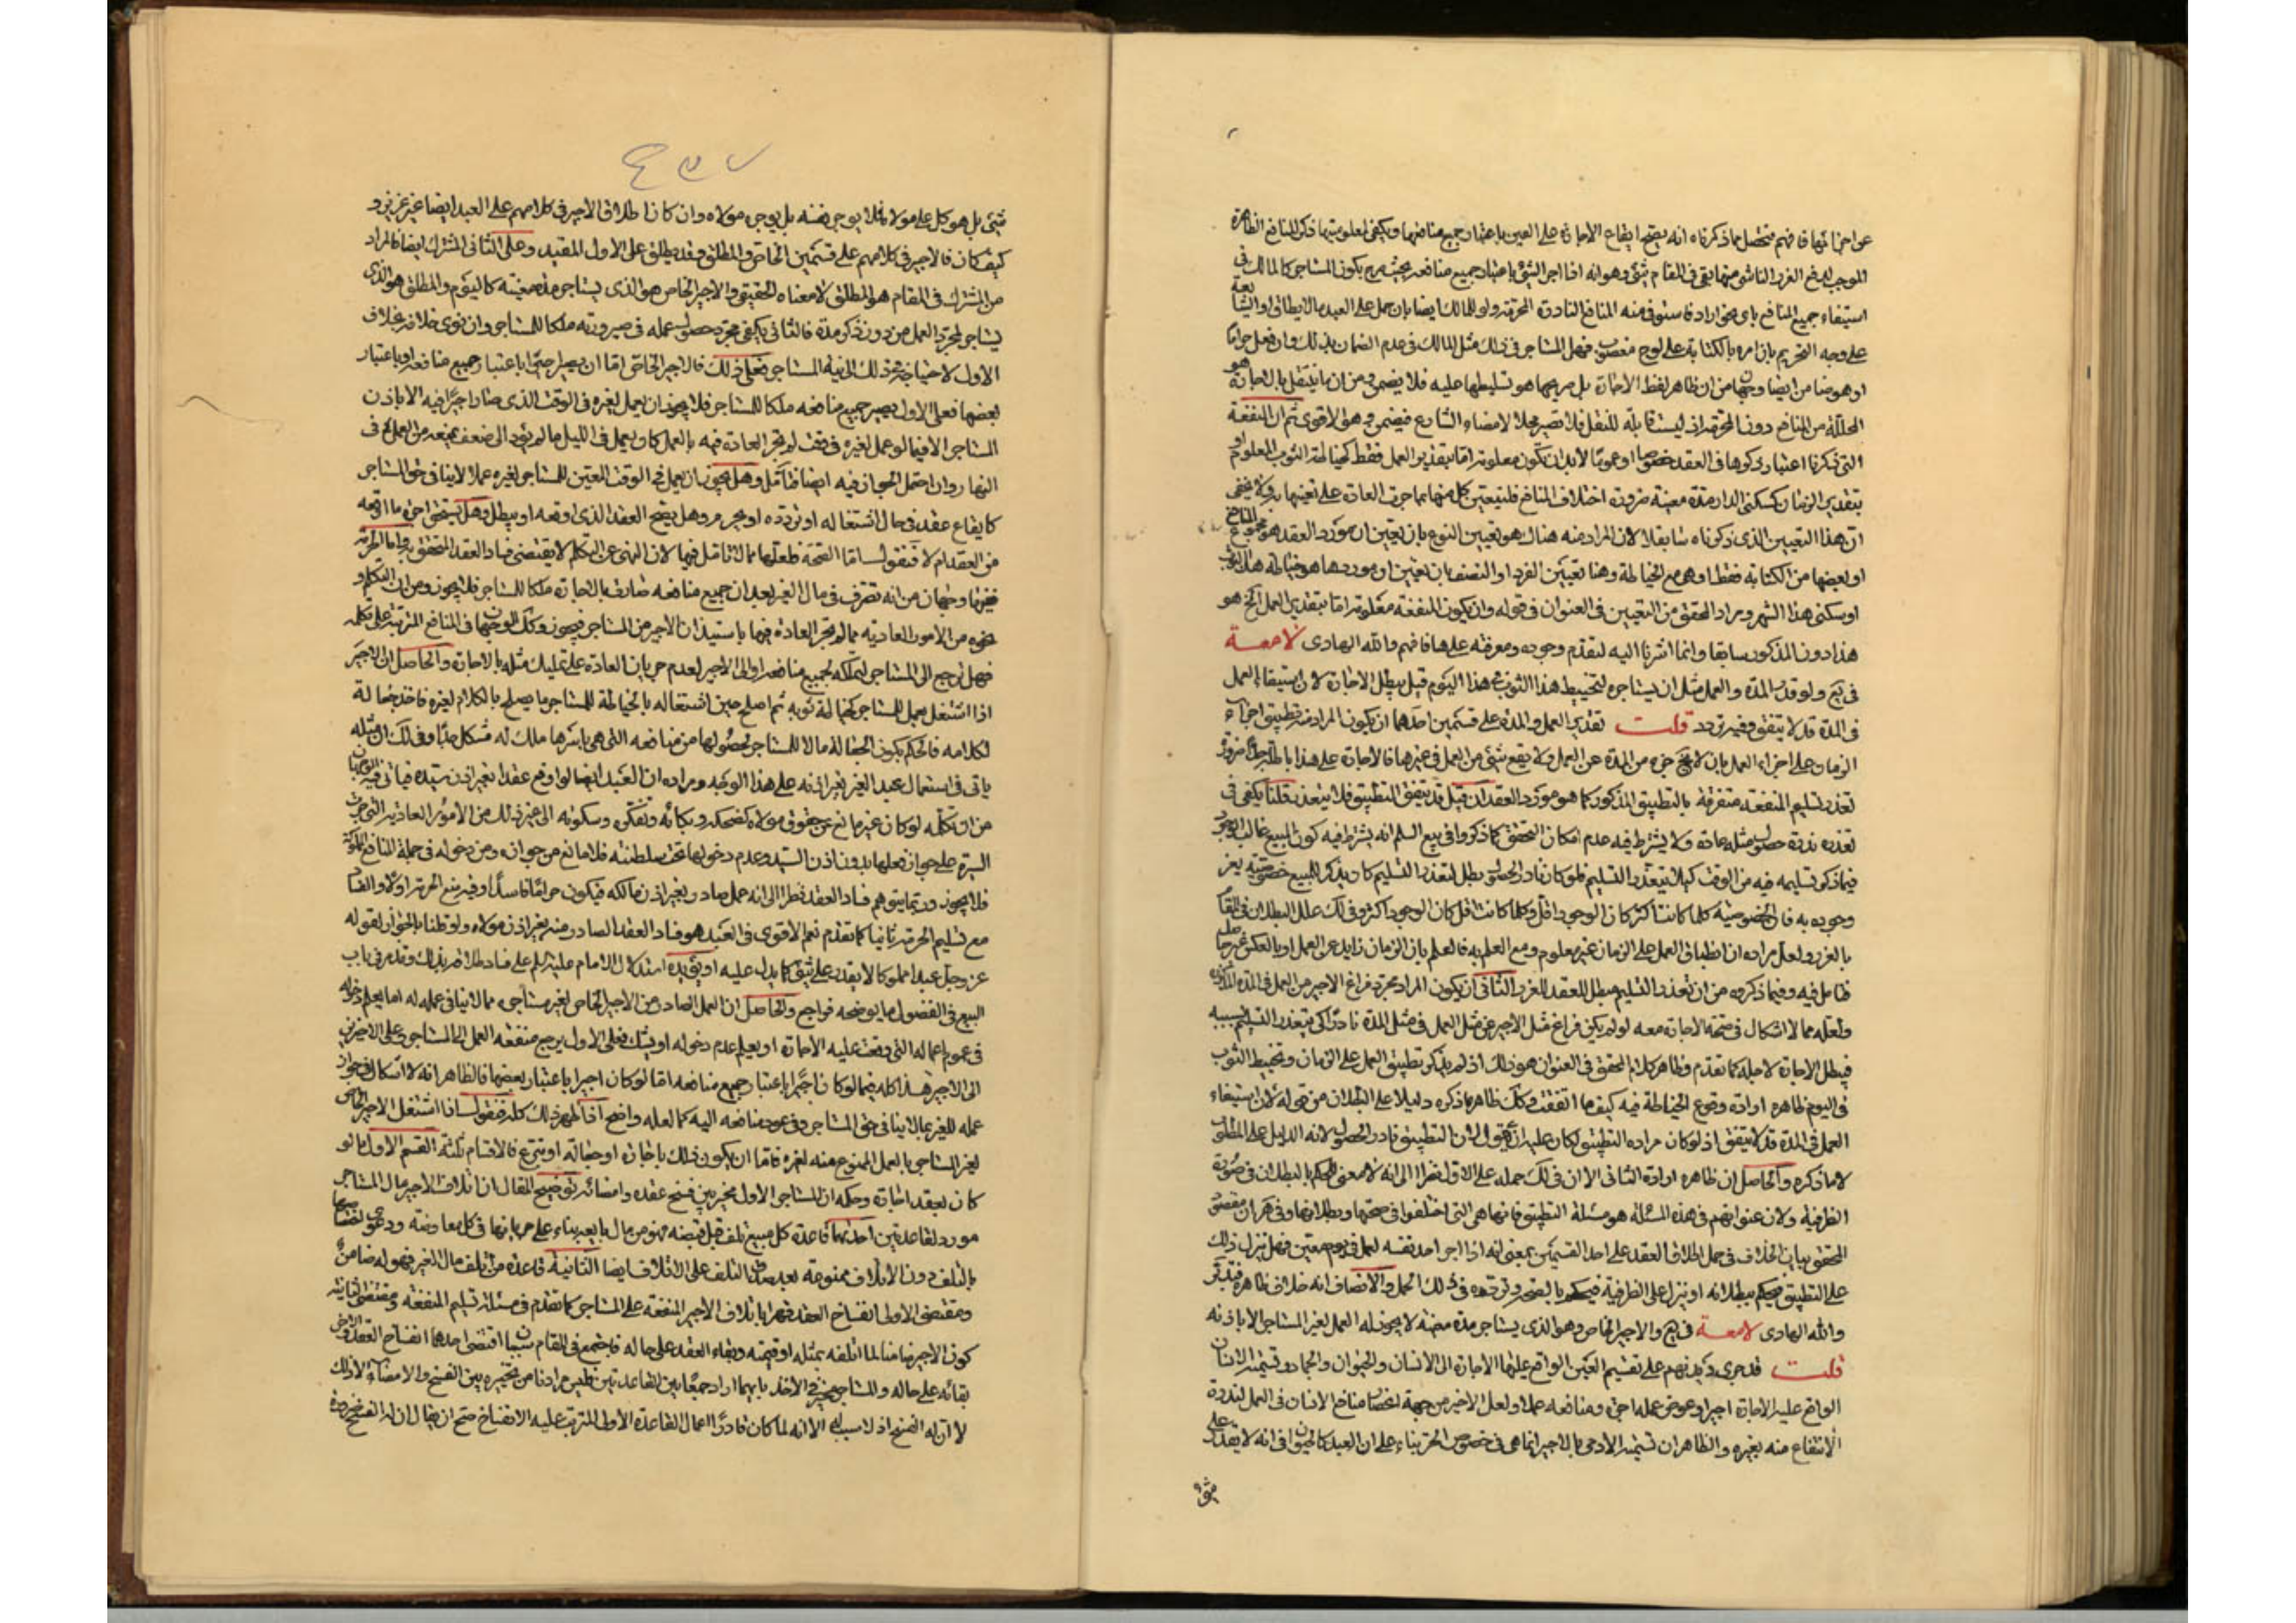 عن اجزائها فافهم فتحصل مما ذكرناه انه يصح ايقاع الاجارة على العين باعتبار جميع منافعها ويكفى لمعلوميتها ذكر المنافع الظاهرة
الموجب لدفع الغرر الناشى منها بقى فى المقام شئ وهو انه اذا اجر الشئ باعتبار جميع منافعه بحيث يكون المستاجر كالمالك فى
استيفاء جميع المنافع باى نحو اراد فاستوفى منه المنافع النادرة المحرمة ولو للمالك ايضا بان حمل على العبد مالا يطاق او الشابعة
على وجه التحريم بان امره بالكتابة على لوح مغصوب فهل المستاجر فى ذلك مثل المالك فى عدم الضمان بذلك وان فعل حراما
او هو ضامن ايضا وجهان من ان ظاهر لفظ الاجارة بل صريحها هو تسليطها عليه فلا يضمن ومن ان ما ينتقل بالاجارة هو
المحللة من المنافع دون المحرمة اذ ليست قابلة للنقل فلا تصير محلا لامضاء الشارع فيضمن وهو الاقوى ثم ان المنفعة
التى ذكرنا اعتبار ذكرها فى العقد خصوصا او عموما لابد ان تكون معلومة اما بتقدير العمل فقط كخياطة الثوب المعلوم او
بتقدير الزمان كسكنى الدار مدة معينة ضرورة اختلاف المنافع فليتعين كل منها بما جرت العادة على تعينها به ولا يخفى
ان هذا التعيين الذى ذكرناه سابقا لان المراد منه هناك هو تعيين النوع بان يعين ان مورد العقد هو مجموع المنافع
او بعضها من الكتابة فقط او هى مع الخياطة وهنا تعيين الفرد او الصنف بان يعين ان موردها هو خياطة هذا الثوب
او سكنى هذا الشهر ومراد المحقق من التعيين فى العنوان فى قوله وان يكون المنفعة معلومة اما بتقدير العمل الخ هو
هذا دون المذكور سابقا وانما اشرنا اليه لتقدم وجوده ومعرفته على هذا فافهم والله الهادى لامعة
فى يج ولو قدر المدة والعمل مثل ان يستاجره لتخييط هذا الثوب فى هذا اليوم قيل يبطل الاجارة لان استيفاء العمل
فى المدة قد لا يتفق وفيه تردد قلت تقدير العمل والمدة على قسمين احدهما ان يكون المراد منه تطبيق اجزاء
الزمان على اجزاء العمل بان لا يقع جزء من المدة عن العمل ولا يقع شئ من العمل فى غيرها فالاجارة على هذا باطلة جدا ضرورة
تعذر تسليم المنفعة متفرقة بالتطبيق المذكور كما هو مورد العقد ان قيل قد يتفق التطبيق فلا يتعذر قلنا يكفى فى
تعذره ندرة حصول مثله عادة ولا يشترط فيه عدم امكان التحقق كما ذكروا فى بيع السلم انه يشترط فيه كون المبيع غالب الوجود
فيما ذكر تسليمه فيه من الوقت كيلا يتعذر التسليم فلو كان نادر الحصول بطل لتعذر التسليم كما ويذكر للمبيع خصوصية يعز
وجوده به فان الخصوصية كلما كانت اكثر كان الوجود اقل وكلما كانت اقل كان الوجود اكثر وفى لك علل البطلان فى المقام
بالغرر ولعل مراده ان انطباق العمل على الزمان غير معلوم ومع العلم به فالعلم بان الزمان زايد عن العمل او بالعكس غير حاصل
فتامل فيه وفيما ذكروه من ان تعذر التسليم مبطل للعقد للغرر الثانى ان يكون المراد مجرد فراغ الاجير من العمل فى المدة المذكورة
ولعله مما لا اشكال فى صحة الاجارة معه لو لم يكن فراغ مثل الاجير عن مثل العمل فى مثل المدة نادرا كى يتعذر التسليم بسببه
فيبطل الاجارة لاجله كما تقدم وظاهر كلام المحقق فى العنوان هو ذلك اذ لم يذكر تطبيق العمل على الزمان وتخييط الثوب
فى اليوم ظاهره ارادة وقوع الخياطة فيه كيف ما اتفقت وكك ظاهر ما ذكره دليلا على البطلان من قوله لان استيفاء
العمل فى المدة قد لا يتفق اذ لو كان مراده التطبيق لكان عليه ان يقول لان التطبيق نادر الحصول لانه الدليل على المطلوب
لا ما ذكره والحاصل ان ظاهره ارادة الثانى الا ان فى لك حمله على الاول نظرا الى انه لا معنى للحكم بالبطلان فى صورة
الظرفية ولان عنوانهم فى هذه المسئلة هو مسئلة التطبيق فانها هى التى اختلفوا فى صحتها وبطلانها وفى هر ان مقصود
المحقق بيان الخلاف فى حمل اطلاق العقد على احد القسمين بمعنى انه اذا اجر احد نفسه لعمل فى يوم معين فهل ينزل ذلك
على التطبيق فيحكم ببطلانه او ينزل على الظرفية فيحكم بالصحة وتردده فى ذلك الحمل والانصاف انه خلاف ظاهره فتدبر
والله الهادى لامعة فى يج والاجير الخاص وهو الذى يستاجر مدة معينة لا يجوز له العمل لغير المستاجر الا باذنه
قلت قد جرى ديدنهم على تقسيم العين الواقع عليها الاجارة الى الانسان والحيوان والجماد وتسمية الانسان
الواقع عليه الاجارة اجيرا وعوض عمله اجرة ومنافعه عملا ولعل الاخير من جهة انحصار منافع الانسان فى العمل لندرة
الانتفاع منه بغيره والظاهر ان تسمية الادمى بالاجير انما هى فى خصوص الحر بناء على ان العبد كالحيوان فى انه لا يقدر على
شئ
شئ بل هو كل على مولاه فلا يوجر نفسه بل يوجره مولاه وان كان اطلاق الاجير فى كلامهم على العبد ايضا غير عزيز و
كيف كان فالاجير فى كلامهم على قسمين الخاص والمطلق وقد يطلق على الاول المقيد وعلى الثانى المشترك ايضا فالمراد
من المشترك فى المقام هو المطلق لا معناه الحقيقى والاجير الخاص هو الذى يستاجر مدة معينة كاليوم والمطلق هو الذى
يستاجر لمجرد العمل من دون ذكر مدة فالثانى يكفى مجرد حصول عمله فى صيرورته ملكا للمستاجر وان نوى خلافه بخلاف
الاول لاحتياجه مع ذلك الى نية المستاجر فعلى ذلك فالاجير الخاص اما ان يصير اجيرا باعتبار جميع منافعه او باعتبار
بعضها فعلى الاول يصير جميع منافعه ملكا للمستاجر فلا يجوز ان يعمل لغيره فى الوقت الذى صار اجيرا فيه الا باذن
المستاجر الا فيما لو عمل لغيره فى وقت لم تجر العادة فيه بالعمل كان يعمل فى الليل ما لم يؤد الى ضعف يمنعه من العمل فى
النهار وان احتمل الجواز فيه ايضا فتامل وهل يجوز ان يعمل فى الوقت المعين للمستاجر لغيره عملا لا ينافى حق المستاجر
كايقاع عقد فى حال اشتغاله او تردده او يحرم وهل يصح العقد الذى اوقعه او يبطل وهل يستحق اجرة ما اوقعه
من العقد ام لا فنقول اما الصحة فلعلها مما لا تامل فيها لان النهى عن التكلم لا يقتضى فساد العقد المتحقق به واما الحرمة
ففيها وجهان من انه تصرف فى مال الغير بعد ان جميع منافعه صارت بالاجارة ملكا للمستاجر فلا يجوز ومن ان التكلم و
نحوه من الامور العادية مما لم تجر العادة فيها باستيذان الاجير من المستاجر فيجوز وكك الوجهان فى المنافع المترتبة على تكلمه
فهل ترجع الى المستاجر لتملكه لجميع منافعه او الى الاجير لعدم جريان العادة على تمليك مثله بالاجارة والحاصل ان الاجير
اذا اشتغل بعمل للمستاجر كخياطة ثوبه ثم اصلح حين اشتغاله بالخياطة للمستاجر ما يصلح بالكلام لغيره فاخذ جعالة
لكلامه فالحكم بكون الجعالة مالا للمستاجر لحصولها من منافعه التى هى باسرها ملك له مشكل جدا وفى لك ان مثله
ياتى فى استعمال عبد الغير بغير اذنه على هذا الوجه ومراده ان العبد ايضا لو اوقع عقدا بغير اذن سيده فياتى فيه الوجهان
من ان تكلمه لو كان غير مانع عن حقوق مولاه كضحكه وبكائه وتفكره وسكوته الى غير ذلك من الامور العادية التى جرت
السيرة على جواز فعلها بدون اذن السيد وعدم دخولها تحت سلطنته فلا مانع من جوازه ومن دخوله فى جملة المنافع المملوكة
فلا يجوز وربما يتوهم فساد العقد نظرا الى انه عمل صادر بغير اذن مالكه فيكون حراما فاسدا وفيه منع الحرمة اولا والفساد
مع تسليم الحرمة ثانيا كما تقدم نعم الاقوى فى العبد هو فساد العقد الصادر منه بغير اذن مولاه ولو قلنا بالجواز لقوله
عز وجل عبدا مملوكا لا يقدر على شئ كما يدل عليه او يؤيده استدلال الامام عليه السلم على فساد طلاقه بذلك وقد مر فى باب
البيع فى الفضولى ما يوضحه فراجع والحاصل ان العمل الصادر من الاجير الخاص لغير مستاجره مما لا ينافى عمله له اما يعلم دخوله
فى عموم اعماله التى وقعت عليه الاجارة او يعلم عدم دخوله او يشك فعلى الاول يرجع منفعة العمل الى المستاجر وعلى الاخيرين
الى الاجير هذا كله فيما لو كان اجيرا باعتبار جميع منافعه اما لو كان اجيرا باعتبار بعضها فالظاهر انه لا اشكال فى جواز
عمله للغير بما لا ينافى حق المستاجر وفى عود منافعه اليه كما لعله واضح اذا ظهر ذلك كله فنقول اذا اشتغل الاجير الخاص
لغير المستاجر بالعمل الممنوع منه لغيره فاما ان يكون ذلك باجارة او جعالة او تبرع فالاقسام ثلثة القسم الاول ما لو
كان بعقد اجارة وحكمه ان المستاجر الاول مخير بين فسخ عقده وامضائه توضيح المقال ان اتلاف الاجير مال المستاجر
مورد لقاعدتين احديهما قاعدة كل مبيع تلف قبل قبضه فهو من مال بايعه بناء على جريانها فى كل معاوضة ودعوى اختصاصها
بالتلف دون الاتلاف ممنوعة بعد صدق التلف على الاتلاف ايضا الثانية قاعدة من اتلف مال الغير فهو له ضامن
ومقتضى الاولى انفساخ العقد قهرا باتلاف الاجير المنفعة على المستاجر كما تقدم فى مسئلة تسليم المنفعة ومقتضى الثانية
كون الاجير ضامنا لما اتلفه بمثله او قيمته وبقاء العقد على حاله فاجتمع فى المقام سببان اقتضى احدهما انفساخ العقد والاخر
بقائه على حاله والمستاجر مخير فى الاخذ بايهما اراد جمعا بين القاعدتين فليس مرادنا من تخييره بين الفسخ والامضاء الا ذلك
لا ان له الفسخ اذ لا سبب له الا انه لما كان قادرا اعمال القاعدة الاولى المترتب عليه الانفساخ صح ان يقال ان له الفسخ ضرورة